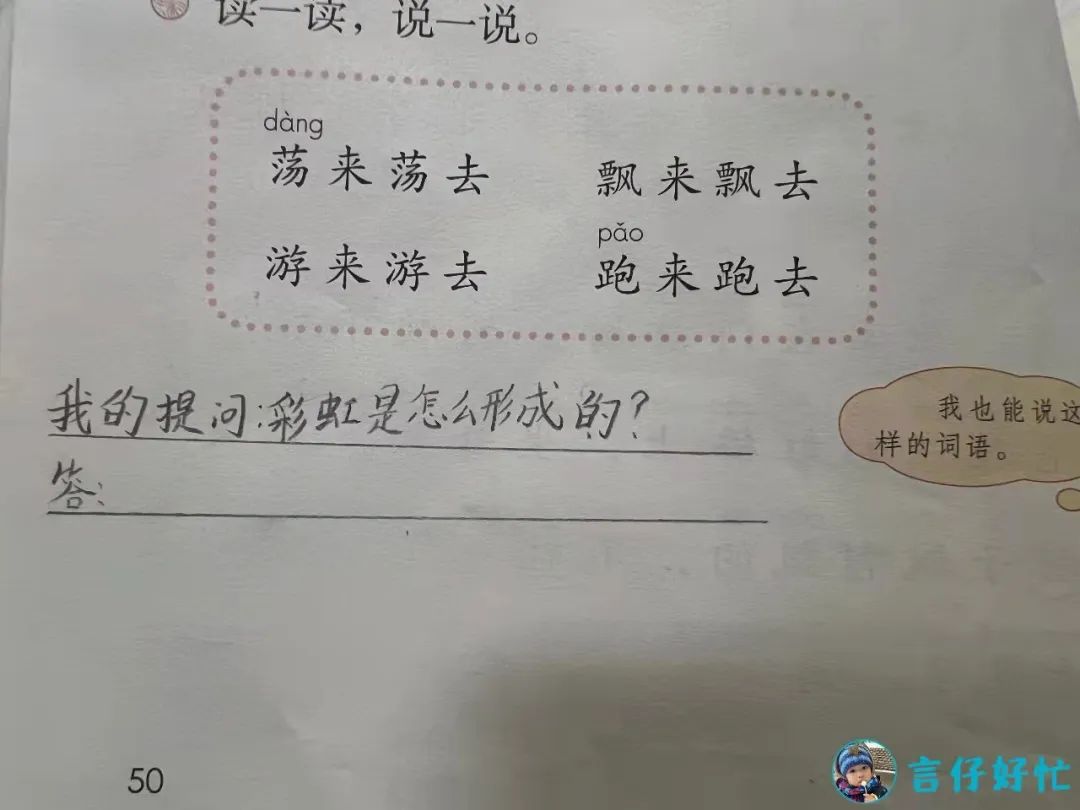 读一读，说一说。
dàng
荡来荡去 飘来飘去
pǎo
游来游去 跑来跑去
我的提问:彩虹是怎么形成的?
我也能说这
样的词语。
答:
50
言仔好忙